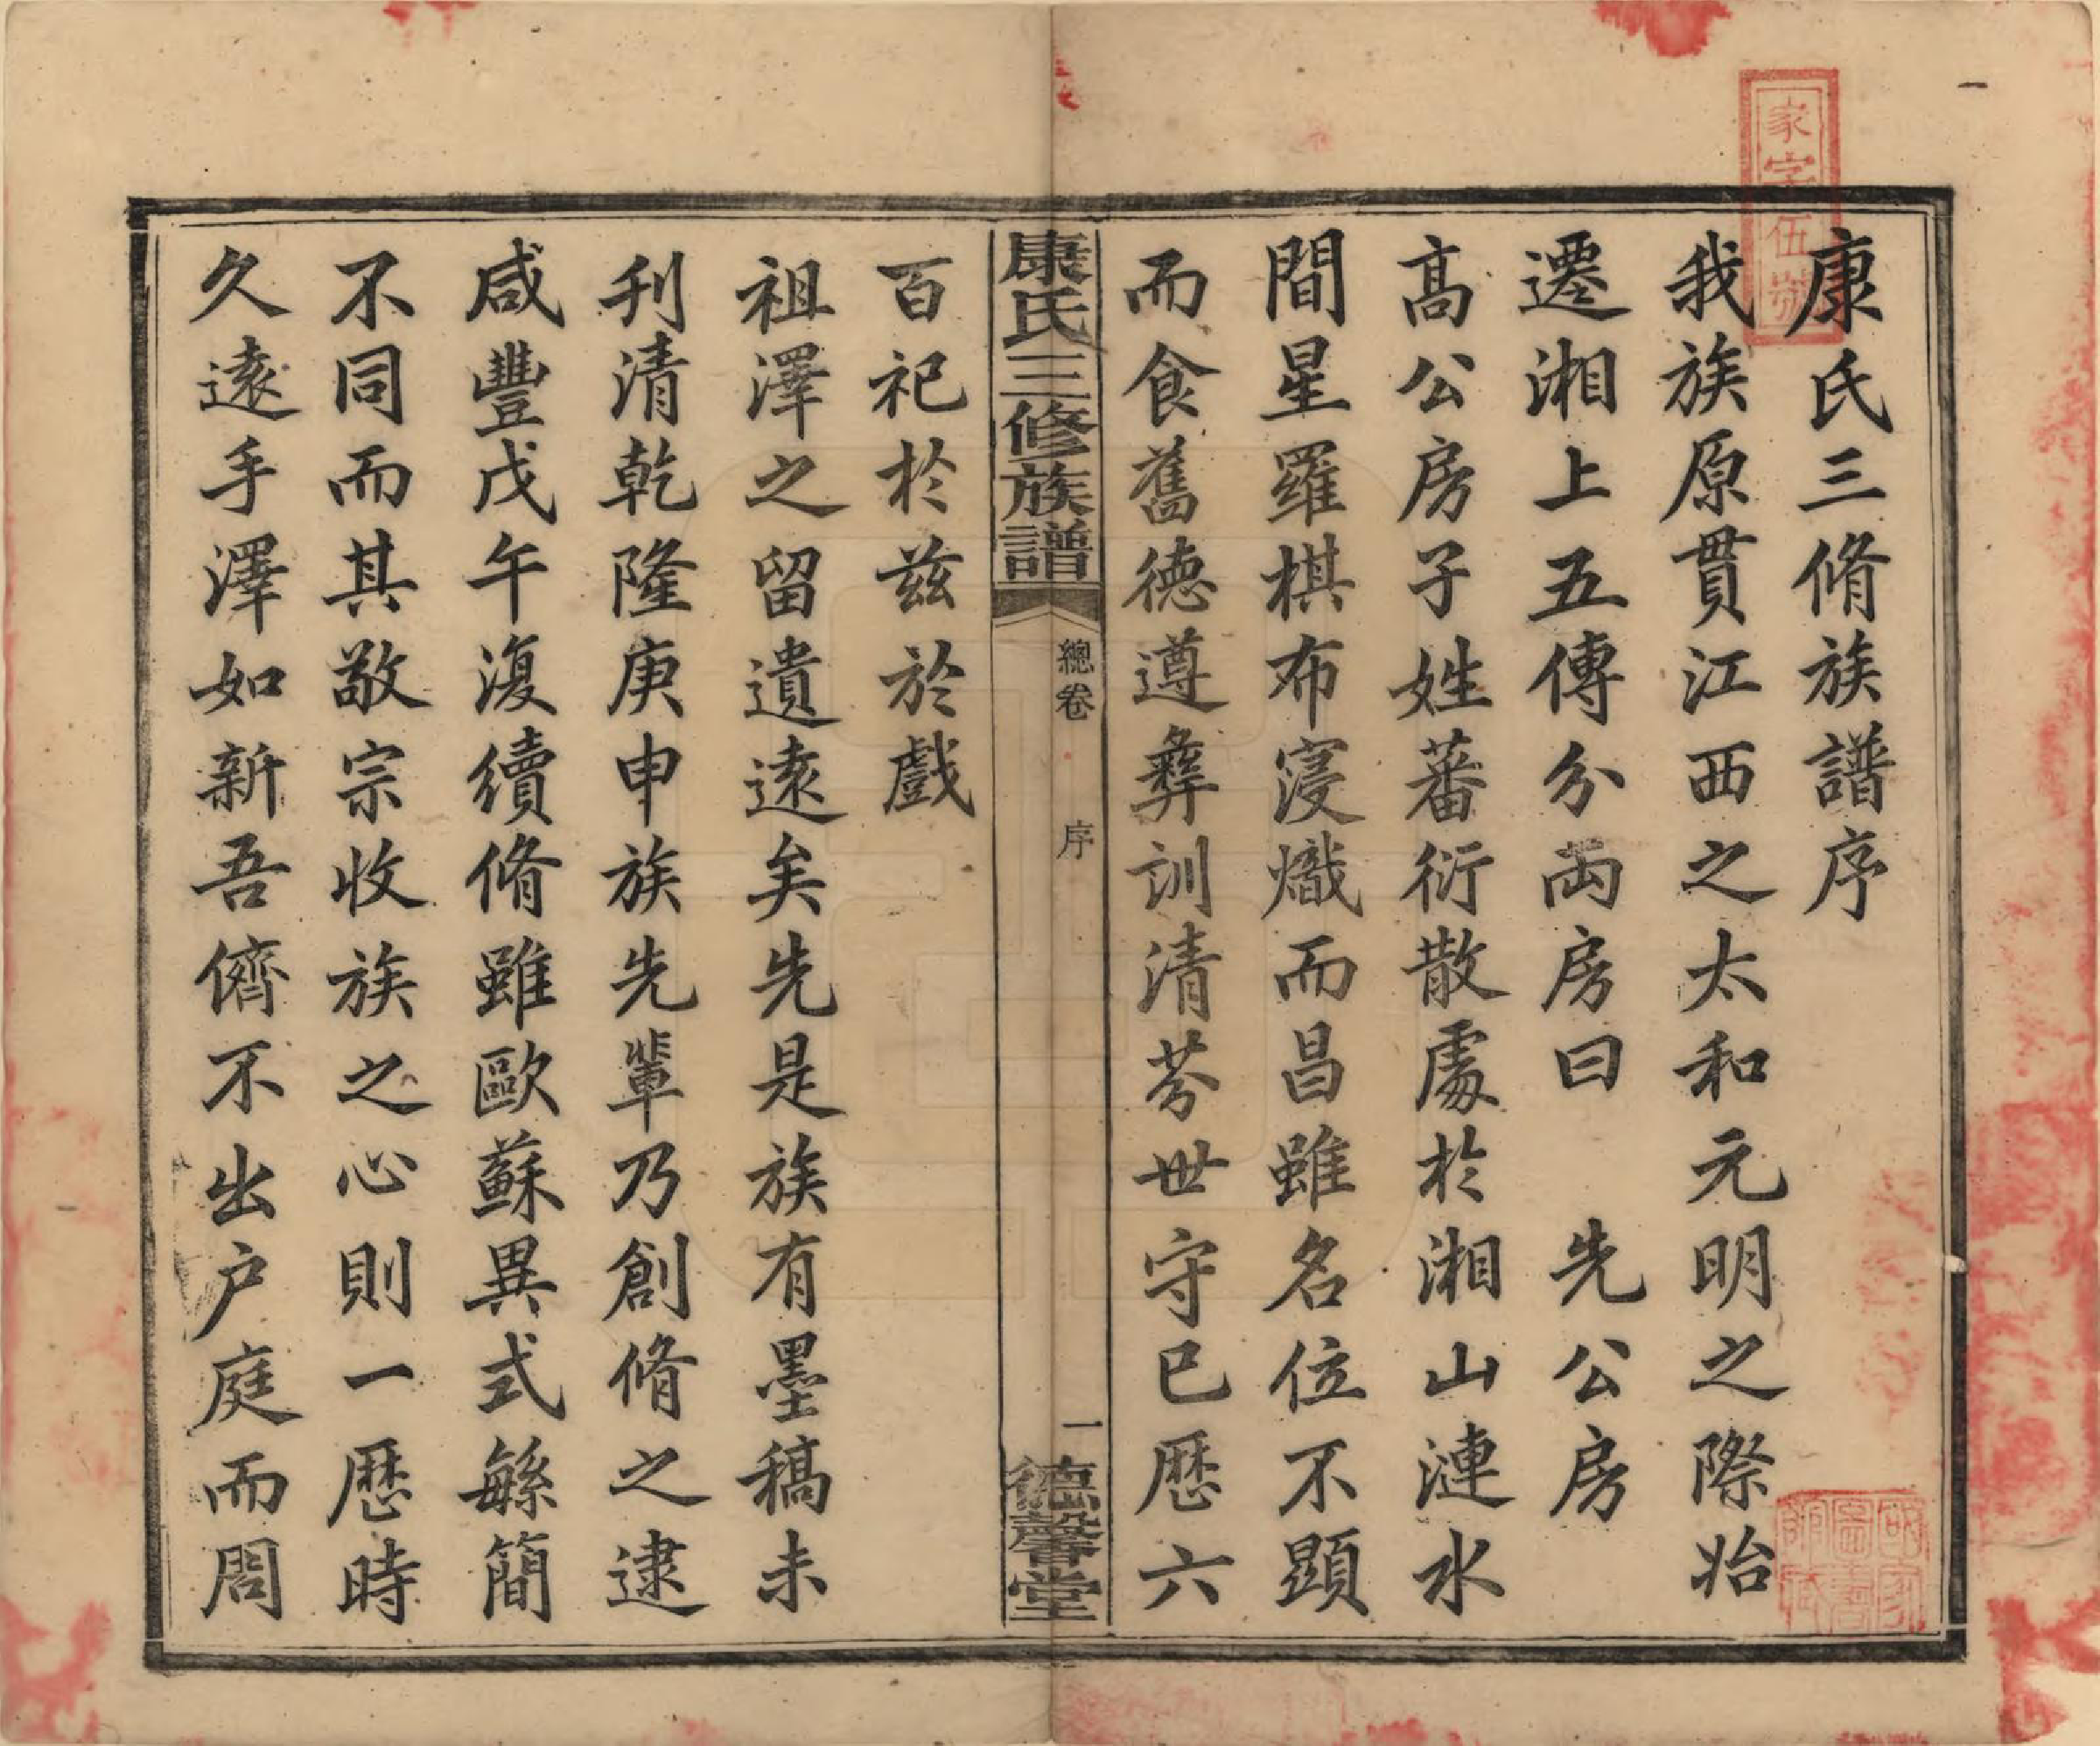 康氏三脩族譜序
我族原貫江西之太和元明之際始
遷湘上五傳分兩房曰　先公房
髙公房子姓蕃衍散處於湘山漣水
間星羅棋布寖熾而昌雖名位不顯
而食舊德遵彝訓清芬世守已歷六
康氏三修族譜
總卷
序
一
德馨堂
百祀於茲於戲
祖澤之留遺遠矣先是族有墨稿未
刋清乾隆庚申族先輩乃創脩之逮
咸豐戊午復續脩雖歐蘇異式緐簡
不同而其敬宗收族之心則一歷時
久遠手澤如新吾儕不出户庭而問
家字伍號
國家
圖書
館藏